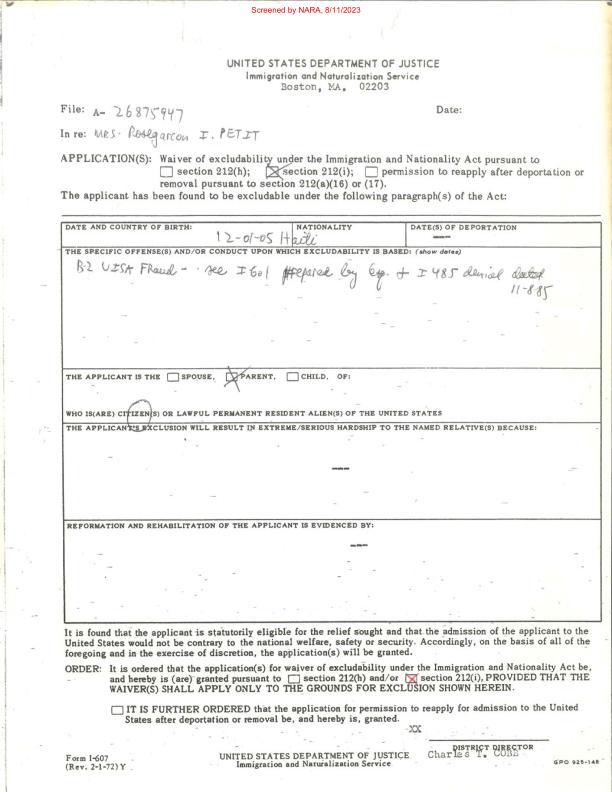 Screened by NARA, 8/11/2023
UNITED STATES DEPARTMENT OF JUSTICE
Immigration and Naturalization Service
Boston, MA. 02203
File: A- 26875947 Date:
In re: MRS. Roselgarcon I. PETIT
APPLICATION(S): Waiver of excludability under the Immigration and Nationality Act pursuant to
section 212(h); section 212(i); permission to reapply after deportation or
removal pursuant to section 212(a)(16) or (17).
The applicant has been found to be excludable under the following paragraph(s) of the Act:
DATE AND COUNTRY OF BIRTH: NATIONALITY DATE(S) OF DEPORTATION
12-01-05 Haiti
THE SPECIFIC OFFENSE(S) AND/OR CONDUCT UPON WHICH EXCLUDABILITY IS BASED: (show dates)
B-2 VISA Fraud - see I 601 prepared by app. + I 485 denial dated
11-8-85
THE APPLICANT IS THE SPOUSE, PARENT, CHILD, OF:
WHO IS(ARE) CITIZEN(S) OR LAWFUL PERMANENT RESIDENT ALIEN(S) OF THE UNITED STATES
THE APPLICANT'S EXCLUSION WILL RESULT IN EXTREME/SERIOUS HARDSHIP TO THE NAMED RELATIVE(S) BECAUSE:
REFORMATION AND REHABILITATION OF THE APPLICANT IS EVIDENCED BY:
It is found that the applicant is statutorily eligible for the relief sought and that the admission of the applicant to the
United States would not be contrary to the national welfare, safety or security. Accordingly, on the basis of all of the
foregoing and in the exercise of discretion, the application(s) will be granted.
ORDER: It is ordered that the application(s) for waiver of excludability under the Immigration and Nationality Act be,
and hereby is (are) granted pursuant to section 212(h) and/or section 212(i), PROVIDED THAT THE
WAIVER(S) SHALL APPLY ONLY TO THE GROUNDS FOR EXCLUSION SHOWN HEREIN.
IT IS FURTHER ORDERED that the application for permission to reapply for admission to the United
States after deportation or removal be, and hereby is, granted.
-XX
DISTRICT DIRECTOR
Charles T. COBB
Form I-607
(Rev. 2-1-72) Y
UNITED STATES DEPARTMENT OF JUSTICE
Immigration and Naturalization Service
GPO 925-148